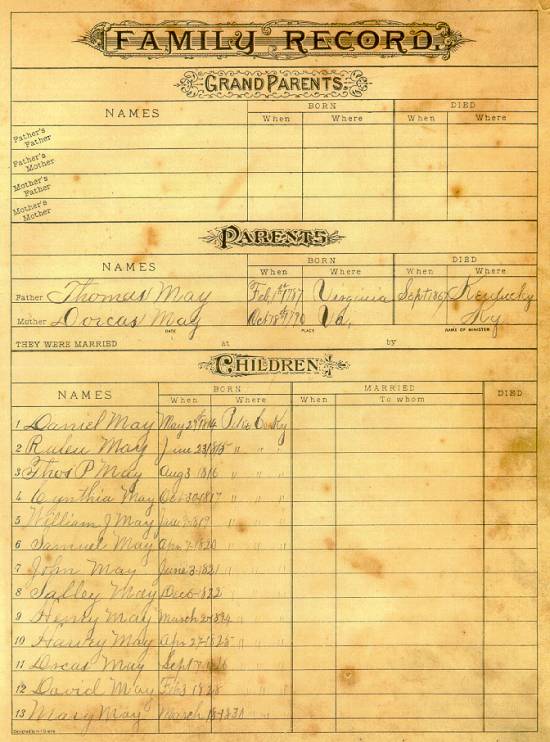 FAMILY RECORD.
GRAND PARENTS.
NAMES BORN DIED
When Where When Where
Father's Father
Father's Mother
Mother's Father
Mother's Mother
PARENTS
NAMES BORN DIED
When Where When Where
Father Thomas May Feb, 1st 1787 Virginia Sept 1867 Kentucky
Mother Dorcas May Oct 18th 1790 Va, Ky
DATE PLACE NAME OF MINISTER
THEY WERE MARRIED at by
CHILDREN
NAMES BORN MARRIED DIED
When Where When To whom
1 Daniel May May 1814 Pike Co. Ky
2 May June 23 1815 " " "
3 Thos P May Aug 3 1816 " "
4 Cynthia May Oct 30-1817 " "
5 William J May June 1819 " "
6 Samuel May Apr 1820 " "
7 John May June 3-1821 " "
8 Salley May Dec 1822 " "
9 Henry May March " "
10 Harvey May Apr 27-1825 " "
11 Dorcas May Sept " "
12 David May Feb 1828 " "
13 Mary May March 18-1830 " "